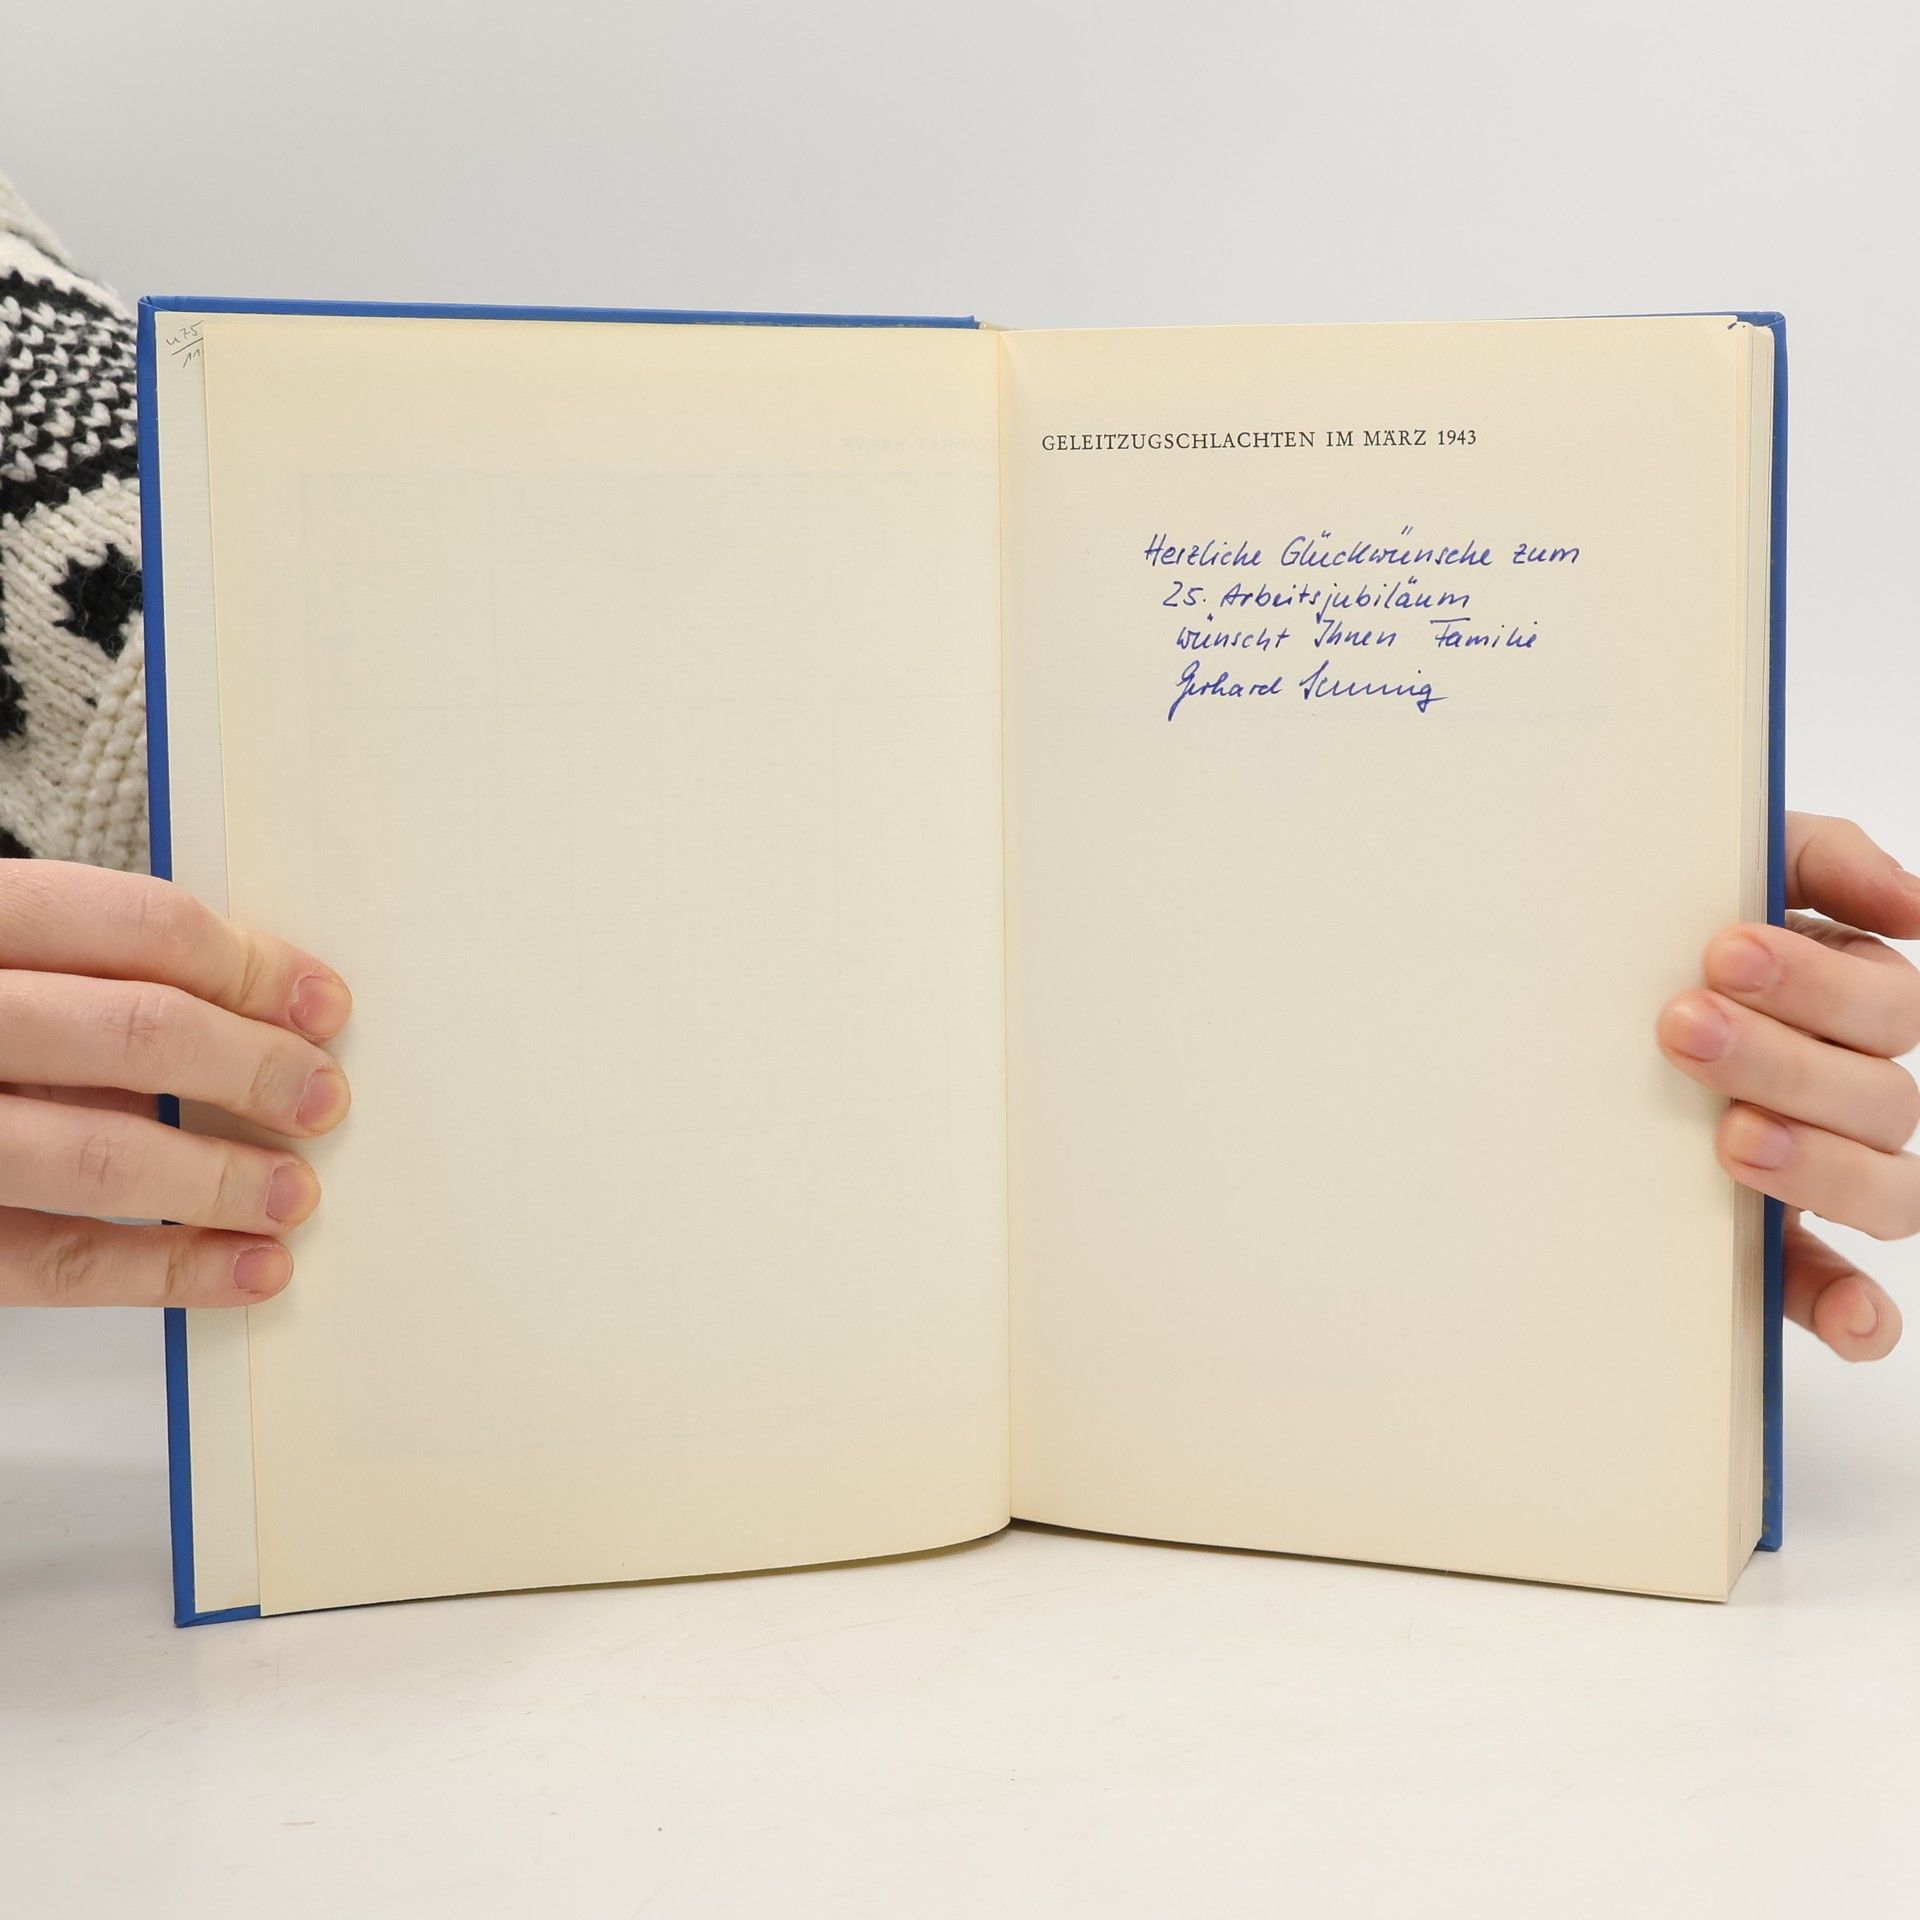 GELEITZUGSCHLACHTEN IM MÄRZ 1943
Herzliche Glückwünsche zum
25. Arbeitsjubiläum
wünscht Ihnen Familie
Gerhard